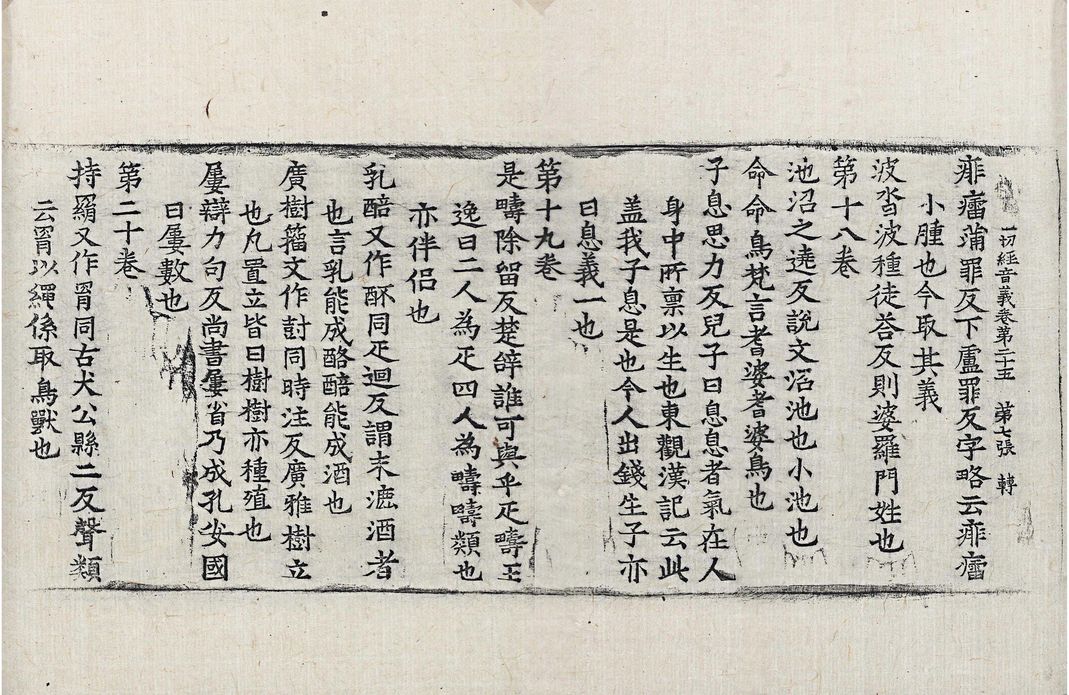 一切経音義卷第二十五 第七張 轉
痱癗蒲罪反下盧罪反字略云痱癗
小腫也今取其義
波沓波種徒荅反則婆羅門姓也
第十八卷
池沼之遶反說文沼池也小池也
命命鳥梵言耆婆耆婆鳥也
子息思力反兒子曰息息者氣在人
身中所禀以生也東觀漢記云此
盖我子息是也今人出錢生子亦
曰息義一也
第十九卷
是疇除留反楚辞誰可與乎疋疇王
逸曰二人為疋四人為疇疇類也
亦伴侣也
乳醅又作酥同疋迴反謂未漉酒者
也言乳能成酪醅能成酒也
廣樹籀文作尌同時注反廣雅樹立
也凡置立皆曰樹樹亦種殖也
屢辯力句反尚書屢省乃成孔安國
曰屢數也
第二十卷
持羂又作罥同古犬公縣二反聲類
云罥以繩係取鳥獸也